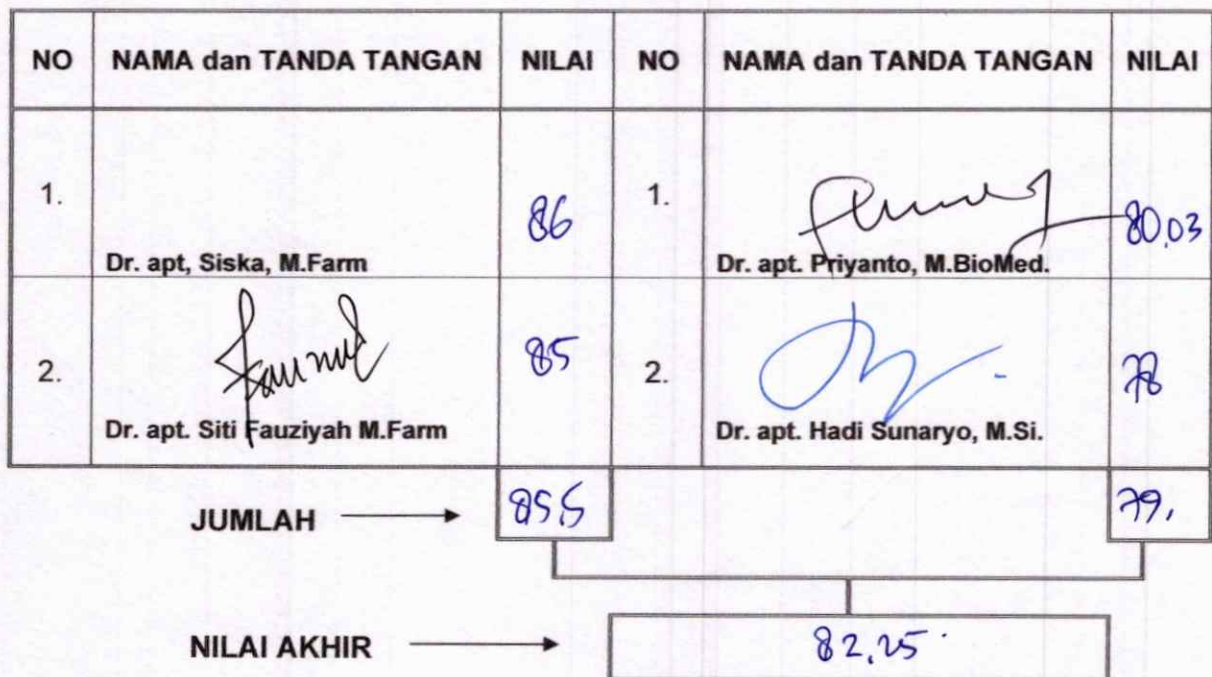 NO NAMA dan TANDA TANGAN NILAI NO NAMA dan TANDA TANGAN NILAI
1. 86 1. 80,03
Dr. apt, Siska, M.Farm Dr. apt. Priyanto, M.BioMed.
2. 85 2. 78
Dr. apt. Siti Fauziyah M.Farm Dr. apt. Hadi Sunaryo, M.Si.
JUMLAH 85,5 79,
NILAI AKHIR 82,25